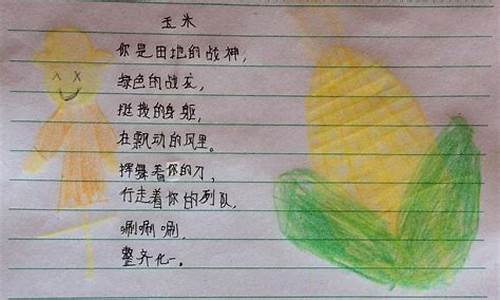 玉米
你是田地的战神,
绿色的战衣,
挺拔的身躯,
在飘动的风里。
挥舞着你的刀,
行走着你的列队,
唰唰唰,
整齐化一。